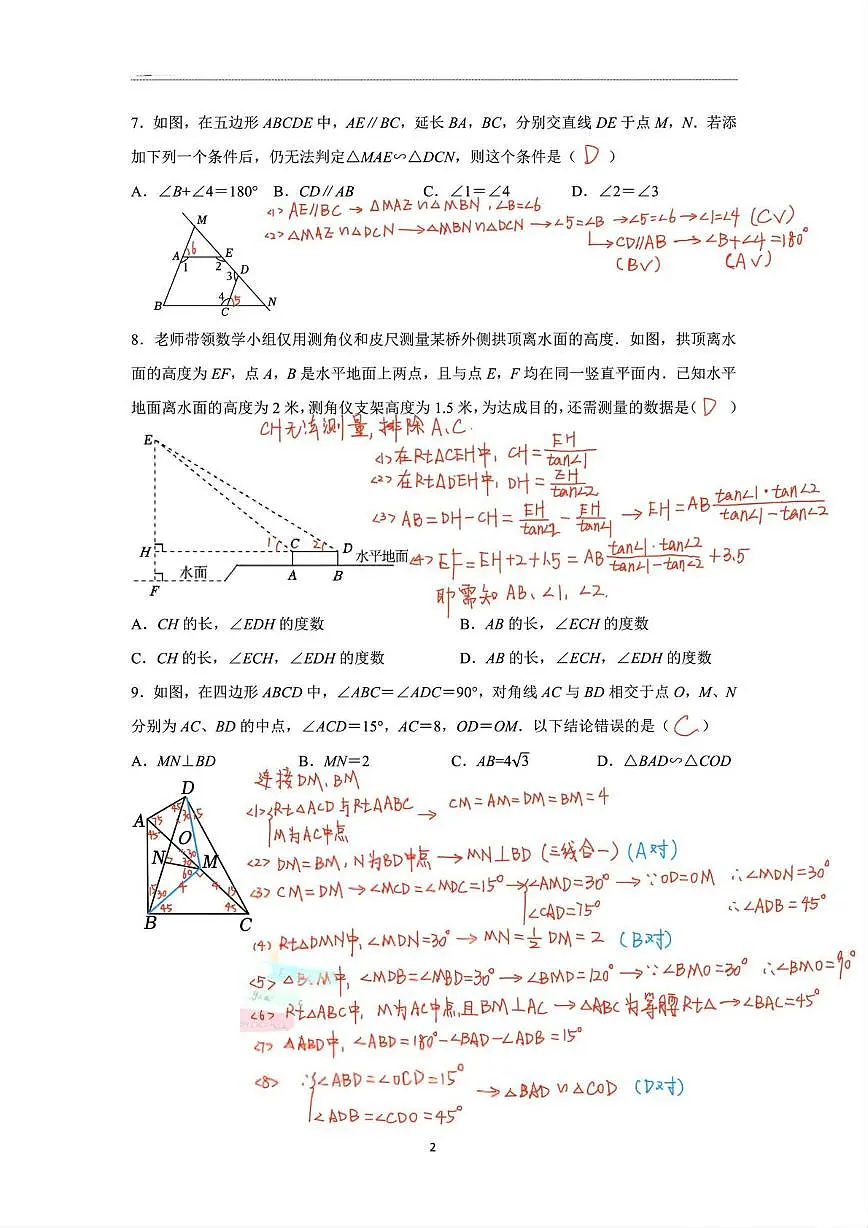 7．如图，在五边形 ABCDE 中，AE∥BC，延长 BA，BC，分别交直线 DE 于点 M，N．若添
加下列一个条件后，仍无法判定△MAE∽△DCN，则这个条件是（ D ）
A．∠B+∠4＝180° B．CD∥AB C．∠1＝∠4 D．∠2＝∠3
<1> AE∥BC → △MAZ ∽ △MBN，∠B=∠6
<2> △MAZ ∽ △DCN → △MBN ∽ △DCN → ∠5=∠B → ∠5=∠6 → ∠1=∠4 (C√)
→ CD∥AB → ∠B+∠4=180°
(B√) (A√)
M
A 6 E
1 2 3 D
B 4 5 C N
8．老师带领数学小组仅用测角仪和皮尺测量某桥外侧拱顶离水面的高度．如图，拱顶离水
面的高度为 EF，点 A，B 是水平地面上两点，且与点 E，F 均在同一竖直平面内．已知水平
地面离水面的高度为 2 米，测角仪支架高度为 1.5 米，为达成目的，还需测量的数据是（ D ）
CH无法测量，排除A、C.
<1> 在Rt△CEH中，CH=EH/tan∠1
<2> 在Rt△DEH中，DH=EH/tan∠2
<3> AB=DH-CH=EH/tan∠2-EH/tan∠1 → EH=AB tan∠1·tan∠2/tan∠1-tan∠2
<4> EF=EH+2+1.5=AB tan∠1·tan∠2/tan∠1-tan∠2+3.5
即需知 AB、∠1、∠2.
E
H 1 C 2 D 水平地面
水面 A B
F
A．CH 的长，∠EDH 的度数 B．AB 的长，∠ECH 的度数
C．CH 的长，∠ECH，∠EDH 的度数 D．AB 的长，∠ECH，∠EDH 的度数
9．如图，在四边形 ABCD 中，∠ABC＝∠ADC＝90°，对角线 AC 与 BD 相交于点 O，M、N
分别为 AC、BD 的中点，∠ACD＝15°，AC＝8，OD＝OM．以下结论错误的是（ C ）
A．MN⊥BD B．MN＝2 C．AB=4√3 D．△BAD∽△COD
连接DM、BM
<1> Rt△ACD与Rt△ABC → CM=AM=DM=BM=4
M为AC中点
<2> DM=BM，N为BD中点 → MN⊥BD (三线合一) (A对)
<3> CM=DM → ∠MCD=∠MDC=15° → ∠AMD=30° → ∵OD=OM ∴∠MDN=30°
∠CAD=75° ∴∠ADB=45°
(4) Rt△DMN中，∠MDN=30° → MN=½DM=2 (B对)
<5> △BDM中，∠MDB=∠MBD=30° → ∠BMD=120° → ∵∠BMO=30° ∴∠BMO=90°
<6> Rt△ABC中，M为AC中点，且BM⊥AC → △ABC为等腰Rt△ → ∠BAC=45°
<7> △ABD中，∠ABD=180°-∠BAD-∠ADB=15°
<8> ∵∠ABD=∠OCD=15° → △BAD ∽ △COD (D对)
∠ADB=∠CDO=45°
D
45 30 15
A 75
45 O
30
N 30 M
60
15 30 4 4 15
45 45
B C
2